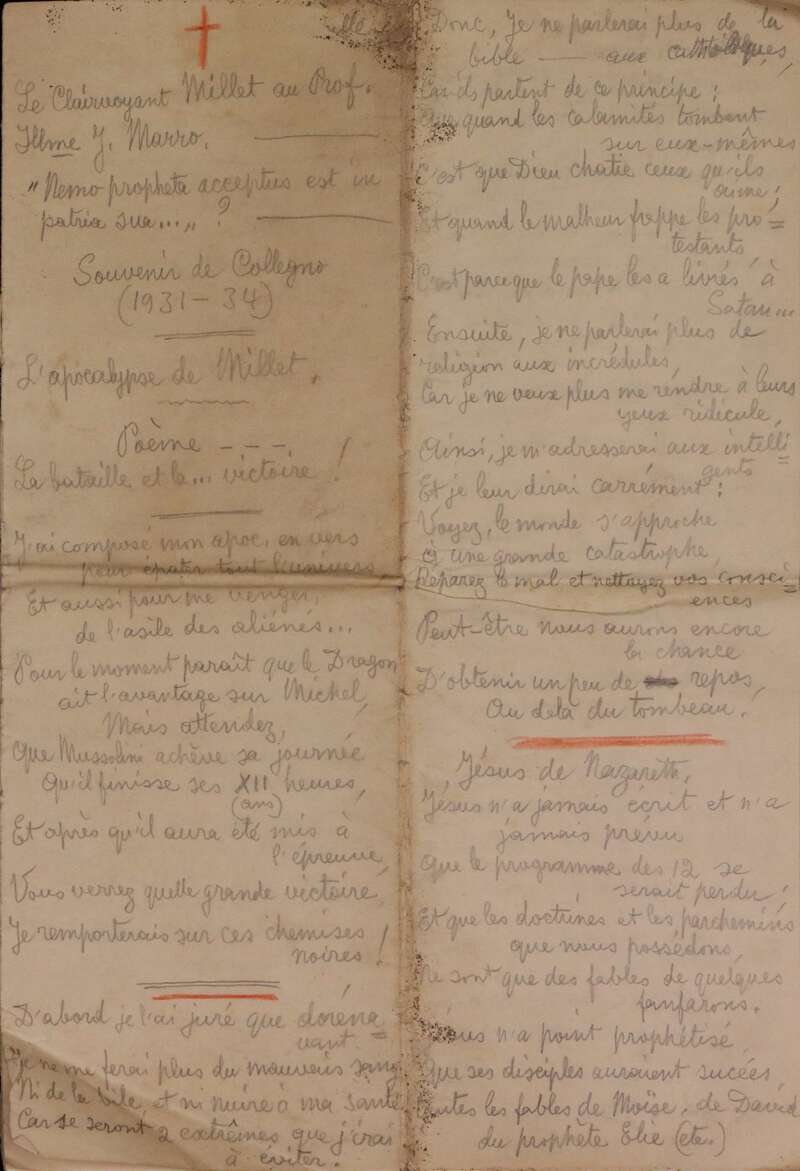 Le Clairvoyant Millet au Prof.
Illme J. Marro.
"Nemo propheta acceptus est in
patria sua...„ ?
Souvenir de Collegno
(1931-34)
L'apocalypse de Millet.
Poème - - -
La bataille et la... victoire !
J'ai composé mon apoc. en vers
pour épater tout l'univers
Et aussi pour me venger,
de l'asile des aliénés...
Pour le moment paraît que le Dragon
ait l'avantage sur Michel,
Mais attendez,
Que Mussolini achève sa journée
Qu'il finisse ses XII heures,
(ans)
Et après qu'il aura été mis à
l'épreuve,
Vous verrez quelle grande victoire,
Je remporterais sur ces chemises
noires !
D'abord je l'ai juré que doréna=
vant
Je ne me ferai plus du mauvais sang
Ni de la bile, et ni nuire à ma santé
Car se seront 2 extrêmes que j'irai
à éviter.
Donc, Je ne parlerai plus de la
bible — aux catholiques,
Car ils partent de ce principe ;
Que quand les calamités tombent
sur eux-mêmes
C'est que Dieu chatie ceux qu'ils
aime !
Et quand le malheur frappe les pro=
testants,
C'est parceque le pape les a livrés à
Satan...
Ensuite, je ne parlerai plus de
religion aux incrédules,
Car je ne veux plus me rendre à leurs
yeux ridicule,
Ainsi, je m'adresserai aux intelli=
gents
Et je leur dirai carrément ;
Voyez, le monde s'approche
à une grande catastrophe,
Réparez le mal et nettoyez vos consci=
ences
Peut-être nous aurons encore
la chance
D'obtenir un peu de repos,
Au delà du tombeau.
Jésus de Nazareth,
Jésus n'a jamais écrit et n'a
jamais prévu
Que le programme des 12 se
serait perdu !
Et que les doctrines et les parchemins
que nous possédons,
Ne sont que des fables de quelques
fanfarons.
Jésus n'a point prophétisé
Que ses disciples auraient sucées,
Toutes les fables de Moïse, de David
du prophète Elie (etc.)